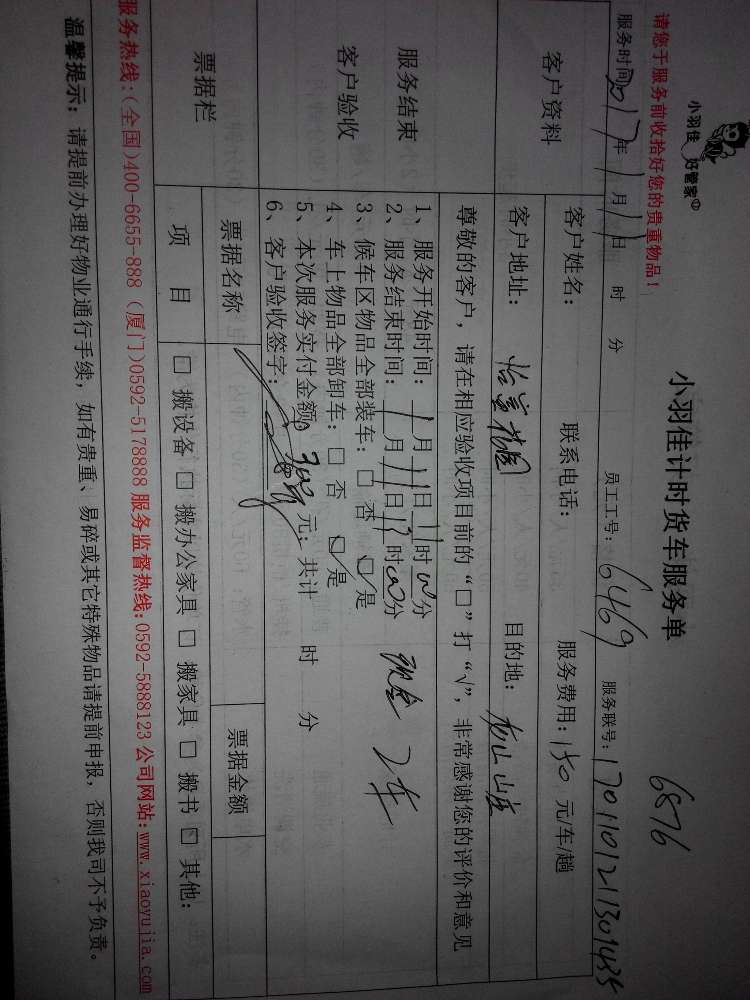 小羽佳 好管家
小羽佳计时货车服务单
6876
请您于服务前收拾好您的贵重物品！
服务时间2017年1月11日 时 分 员工工号：6469 服务联号：1701101211301435
客户资料
客户姓名： 联系电话： 服务费用：150 元/车/趟
客户地址：怡富花园 目的地：龙山山庄
尊敬的客户，请在相应验收项目前的“□”打“√”，非常感谢您的评价和意见
服务结束
客户验收
1、服务开始时间：1月11日11时00分
2、服务结束时间：1月11日13时00分
现金 2车
3、候车区物品全部装车：□ 否 ☑是
4、车上物品全部卸车：□ 否 ☑是
5、本次服务实付金额：300元；共计 时 分
6、客户验收签字：
票据栏
票据名称 票据金额
项 目 □ 搬设备 □ 搬办公家具 □ 搬家具 □ 搬书 □ 其他：
服务热线：(全国)400-6655-888 (厦门)0592-5178888 服务监督热线：0592-5888123 公司网站：www.xiaoyujia.com
温馨提示：请提前办理好物业通行手续，如有贵重、易碎或其它特殊物品请提前申报，否则我司不予负责。